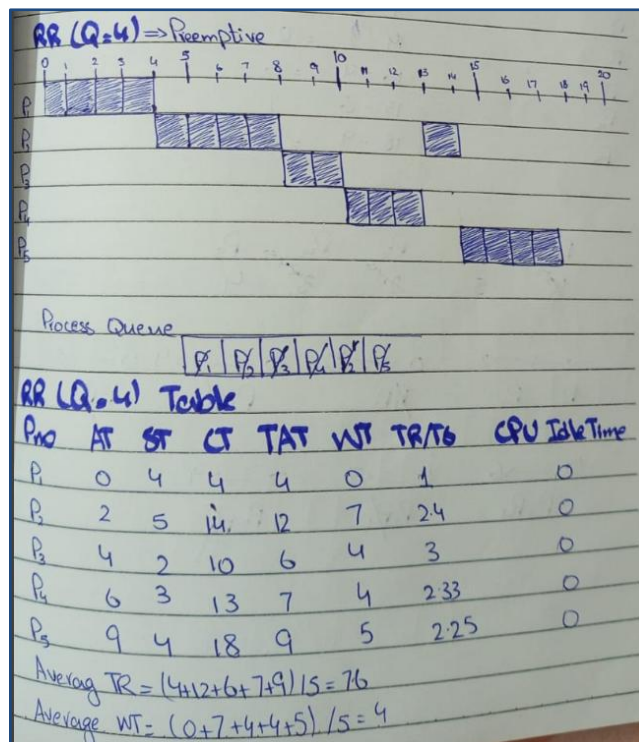 RR (Q=4) => Preemptive
0 1 2 3 4 5 6 7 8 9 10 11 12 13 14 15 16 17 18 19 20
P1
P2
P3
P4
P5
Process Queue
P1 P2 P3 P4 P2 P5
RR (Q=4) Table
Pno AT ST CT TAT WT TR/TS CPU Idle Time
P1 0 4 4 4 0 1 0
P2 2 5 14 12 7 2.4 0
P3 4 2 10 6 4 3 0
P4 6 3 13 7 4 2.33 0
P5 9 4 18 9 5 2.25 0
Averag TR = (4+12+6+7+9)/5 = 7.6
Average WT = (0+7+4+4+5)/5 = 4